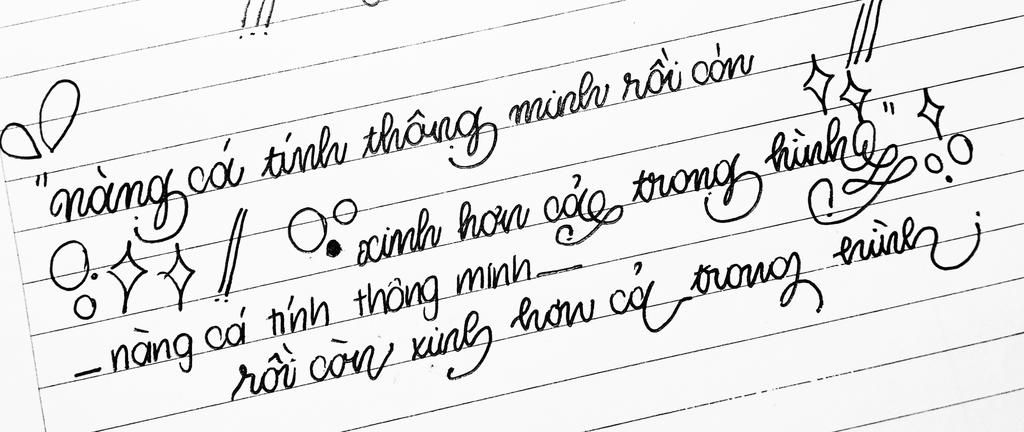 "nàng cá tính thông minh rồi còn
xinh hơn cả trong hình"
_nàng cá tính thông minh_
rồi còn xinh hơn cả trong hình